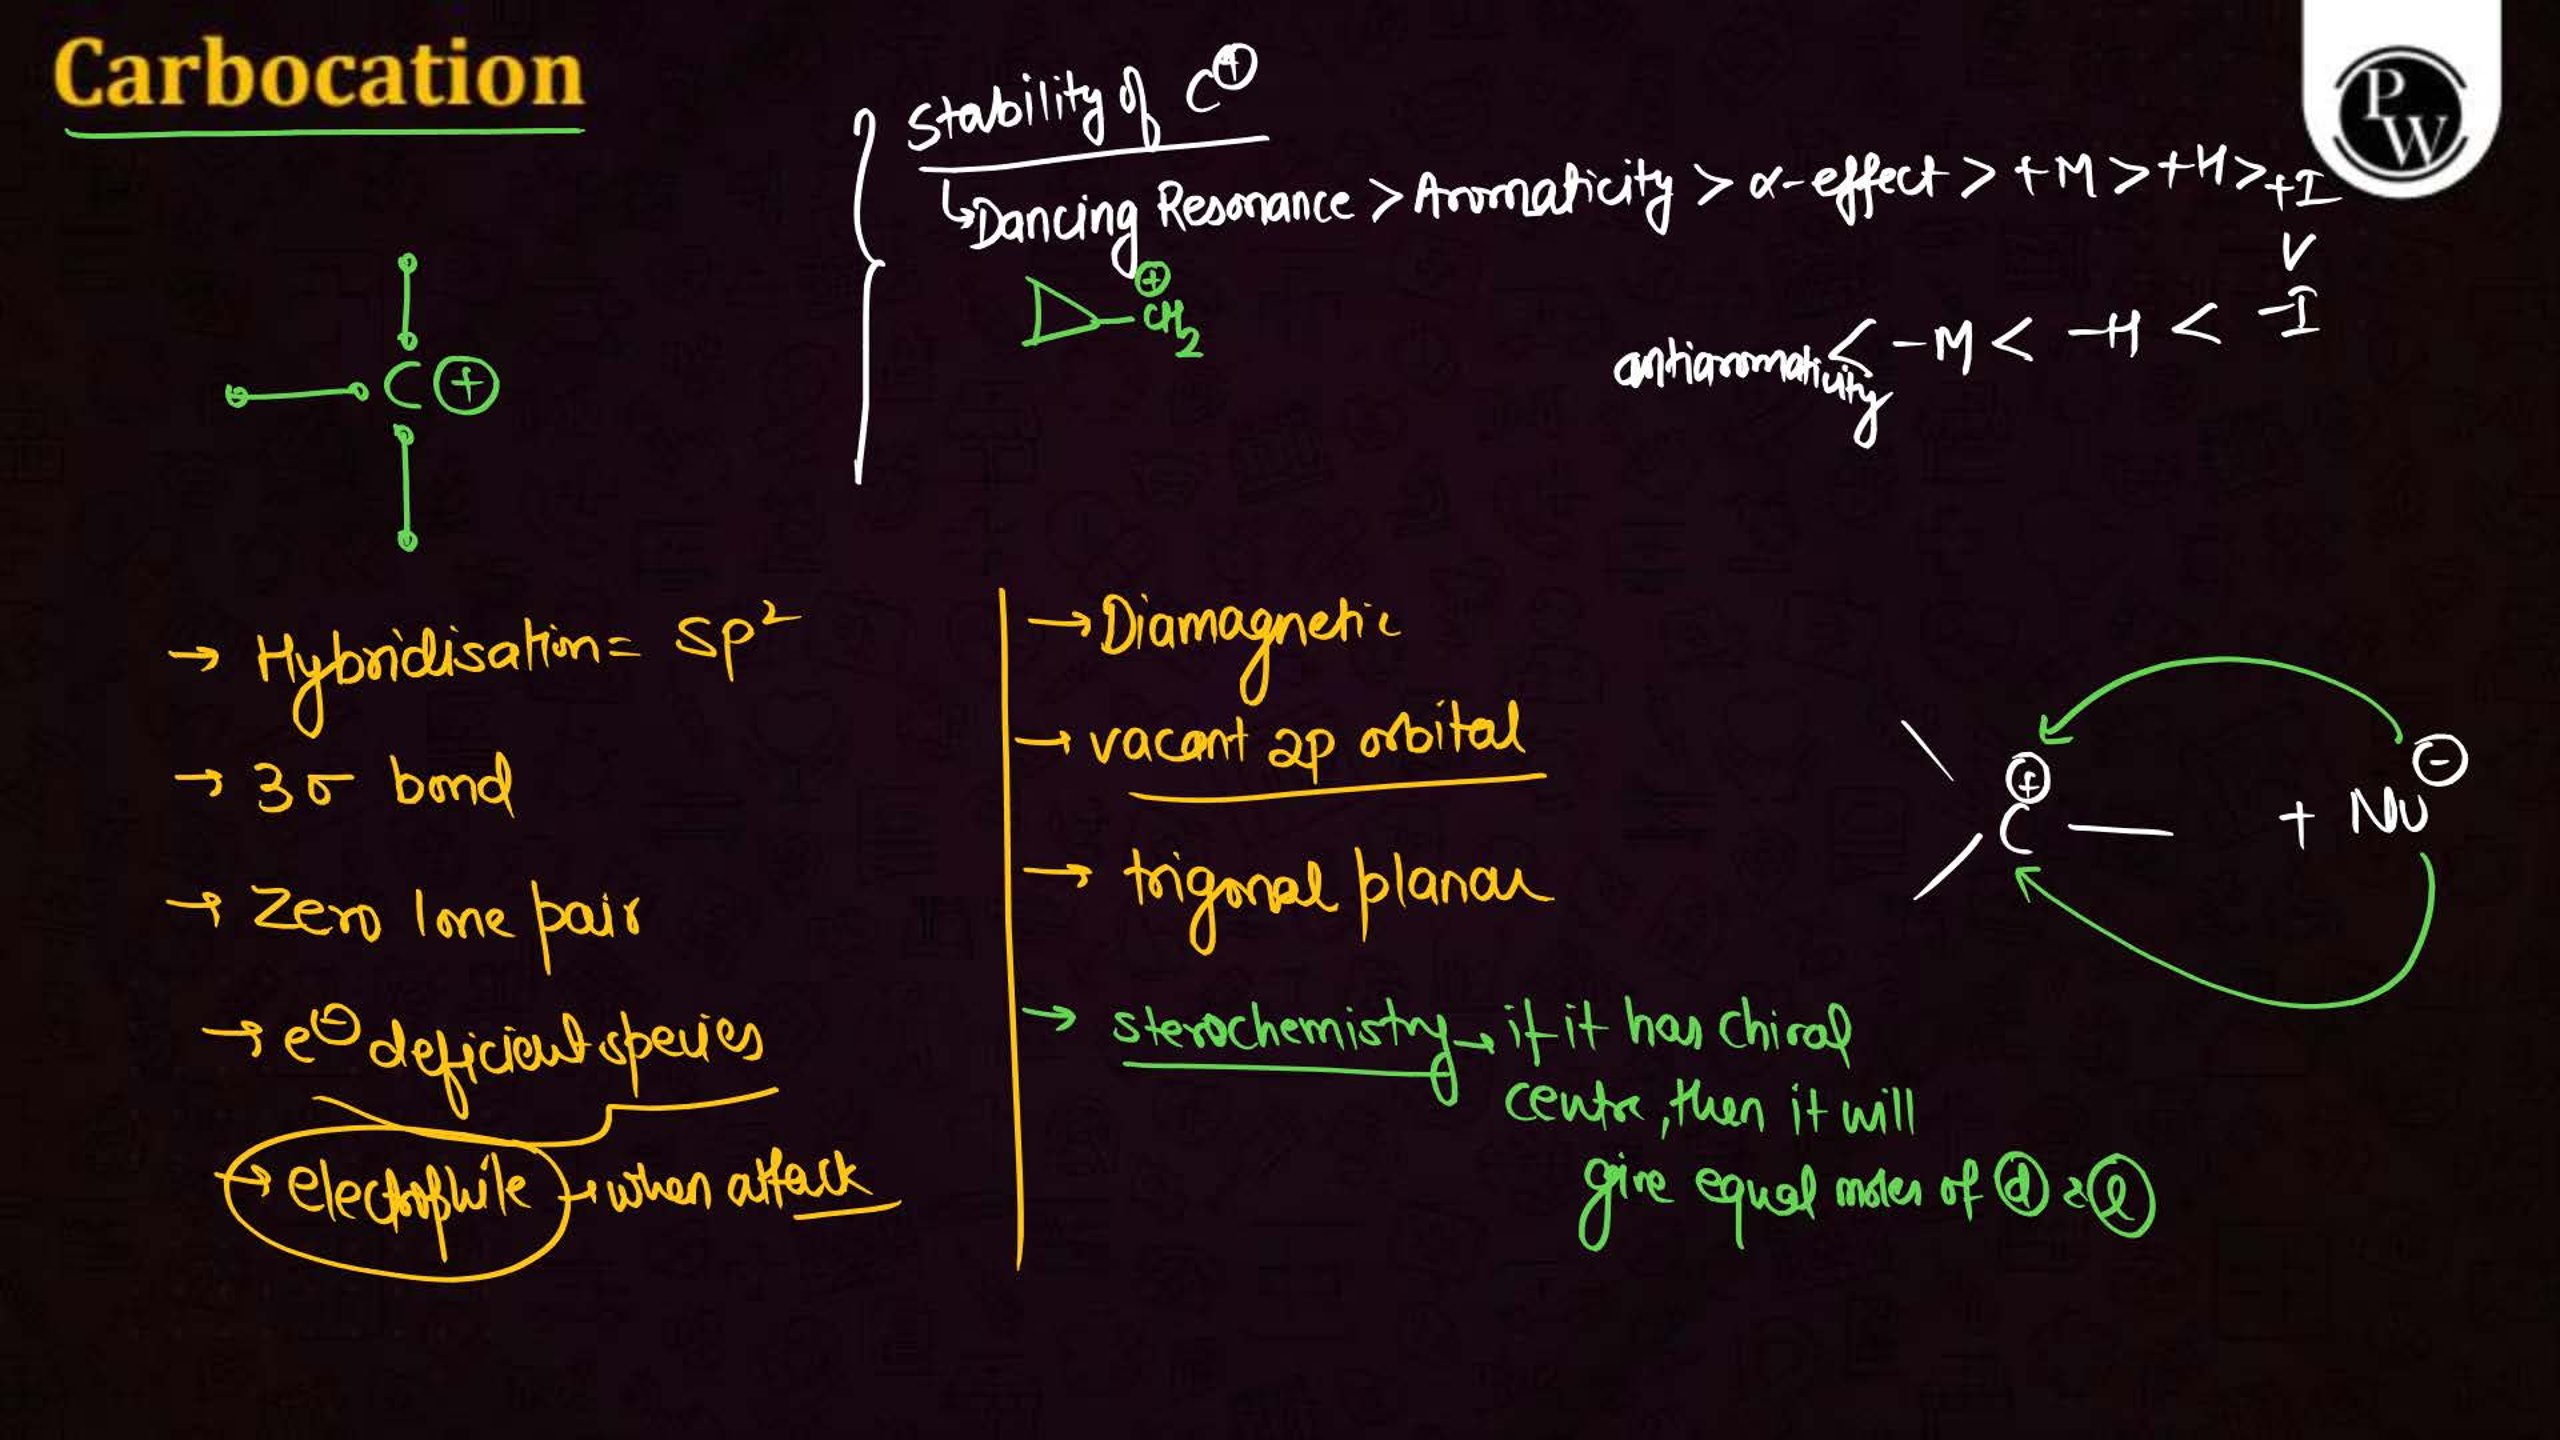 Carbocation
Stability of C⊕
↳Dancing Resonance > Aromaticity > α-effect > +M > +H > +I
V
antiaromaticity < -M < -H < -I
⊕
CH2
C ⊕
→ Hybridisation = sp²
→ 3σ bond
→ Zero lone pair
→ e⊖ deficient species
→ electrophile → when attack
→ Diamagnetic
→ vacant 2p orbital
→ trigonal planar
→ sterochemistry → if it has chiral
centre, then it will
give equal moles of d & l
⊕ ⊖
C + Nu
PW